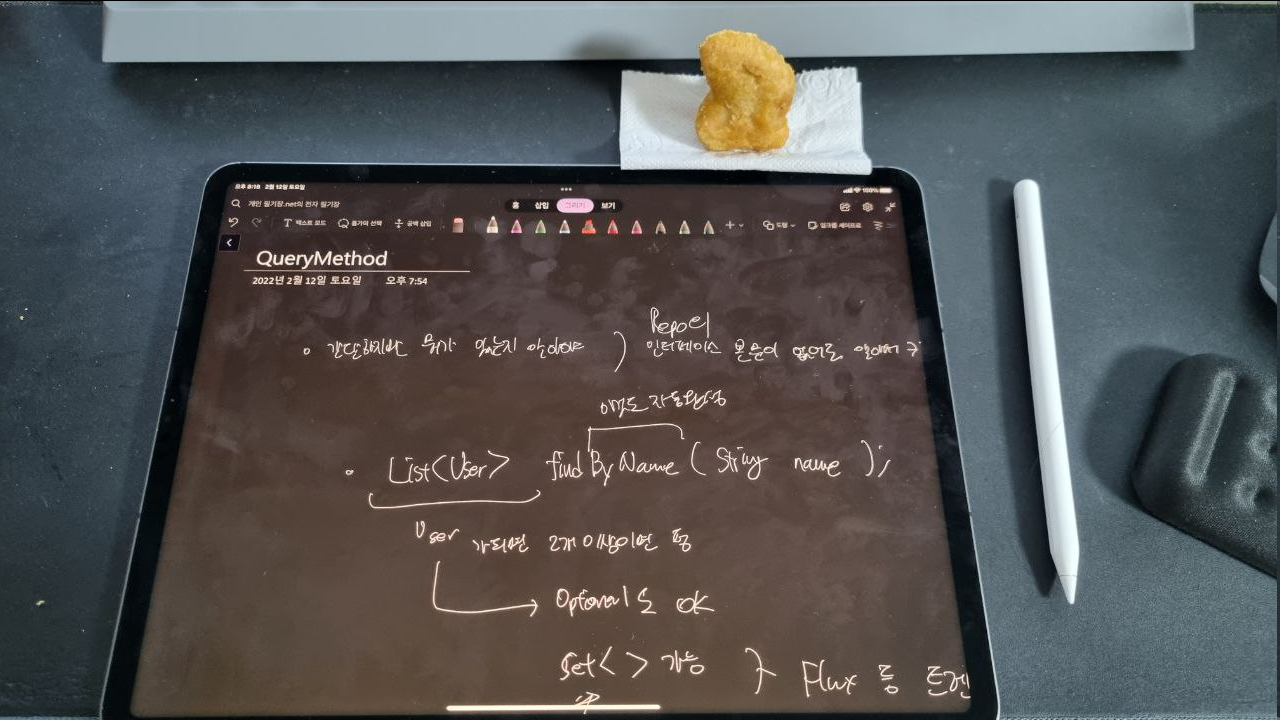 오후 8:18 2월 12일 토요일
100%
개인 필기장.net의 전자 필기장
홈 삽입 그리기 보기
텍스트 모드 올가미 선택 공백 삽입 도형 잉크를 셰이프로
QueryMethod
2022년 2월 12일 토요일 오후 7:54
Repo의
간단하지만 뭐가 있는지 알아야 인터페이스 본문이 없어도 알아서
이것도 자동완성
List<User> findByName (String name);
User 2개 이상이면 펑
Optional도 OK
Set< > 가능 Flux 등